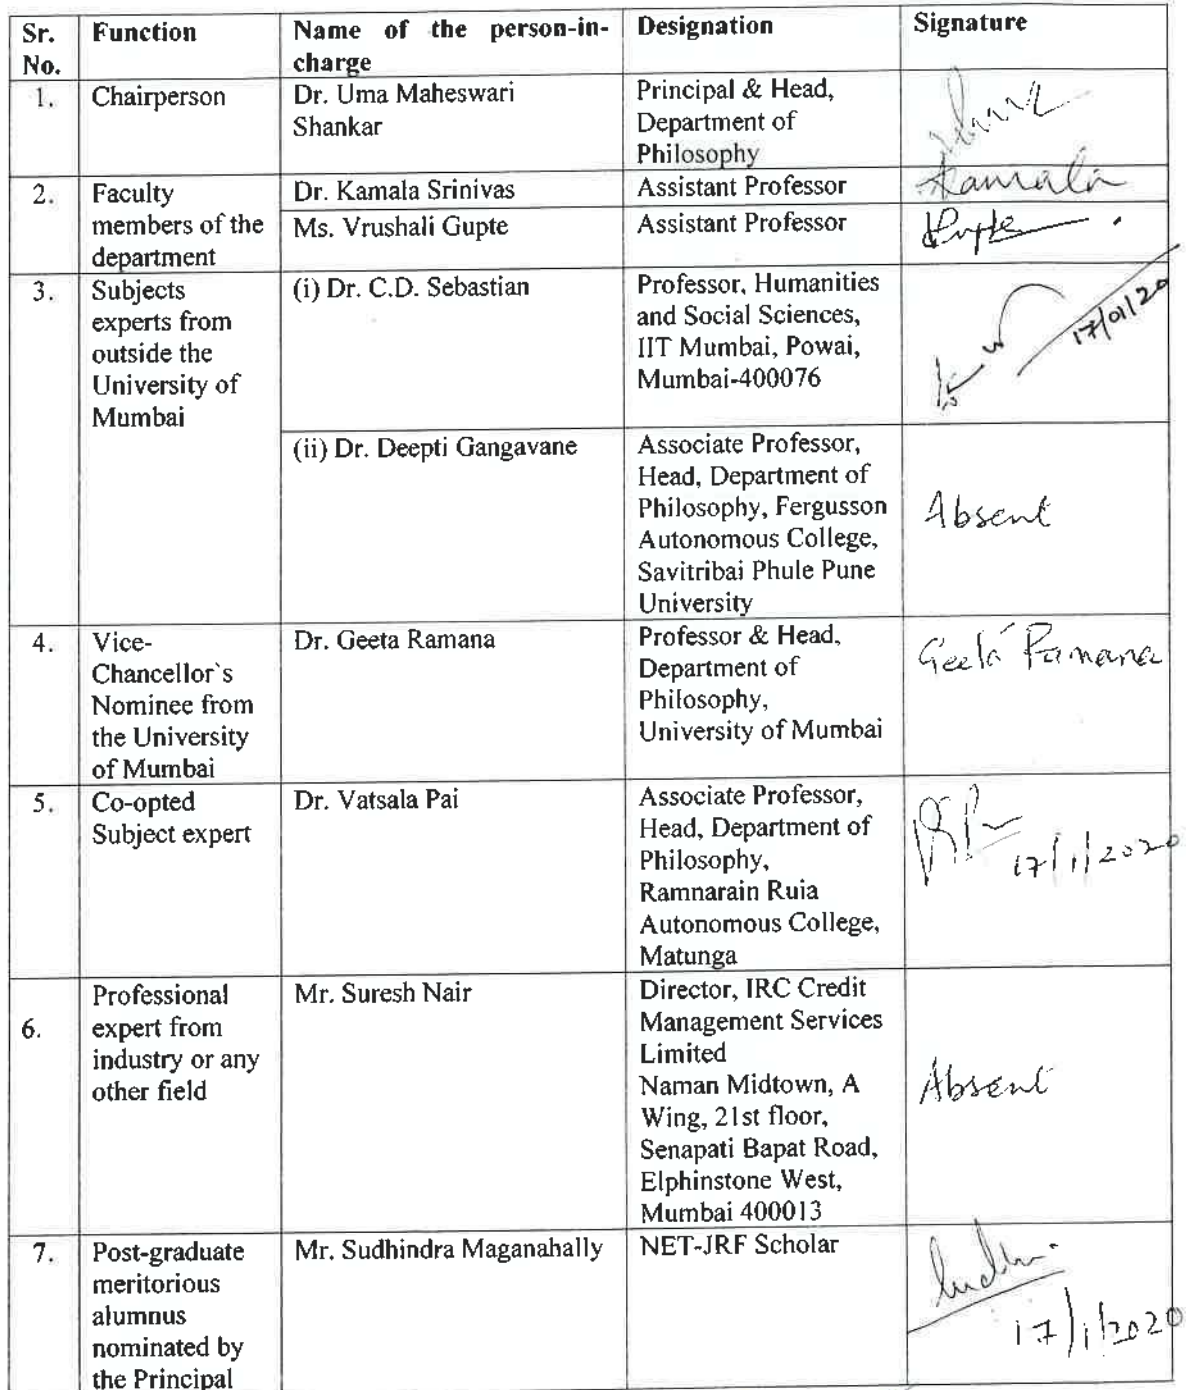 Sr. No. Function Name of the person-in-charge Designation Signature
1. Chairperson Dr. Uma Maheswari Shankar Principal & Head,
Department of
Philosophy
2. Faculty
members of the
department
Dr. Kamala Srinivas Assistant Professor Kamala
Ms. Vrushali Gupte Assistant Professor Gupte
3. Subjects
experts from
outside the
University of
Mumbai
(i) Dr. C.D. Sebastian
Professor, Humanities
and Social Sciences,
IIT Mumbai, Powai,
Mumbai-400076
17/01/20
(ii) Dr. Deepti Gangavane
Associate Professor,
Head, Department of
Philosophy, Fergusson
Autonomous College,
Savitribai Phule Pune
University
Absent
4. Vice-
Chancellor`s
Nominee from
the University
of Mumbai
Dr. Geeta Ramana
Professor & Head,
Department of
Philosophy,
University of Mumbai
Geeta Ramana
5. Co-opted
Subject expert
Dr. Vatsala Pai
Associate Professor,
Head, Department of
Philosophy,
Ramnarain Ruia
Autonomous College,
Matunga
17/1/2020
6. Professional
expert from
industry or any
other field
Mr. Suresh Nair
Director, IRC Credit
Management Services
Limited
Naman Midtown, A
Wing, 21st floor,
Senapati Bapat Road,
Elphinstone West,
Mumbai 400013
Absent
7. Post-graduate
meritorious
alumnus
nominated by
the Principal
Mr. Sudhindra Maganahally
NET-JRF Scholar
17/1/2020